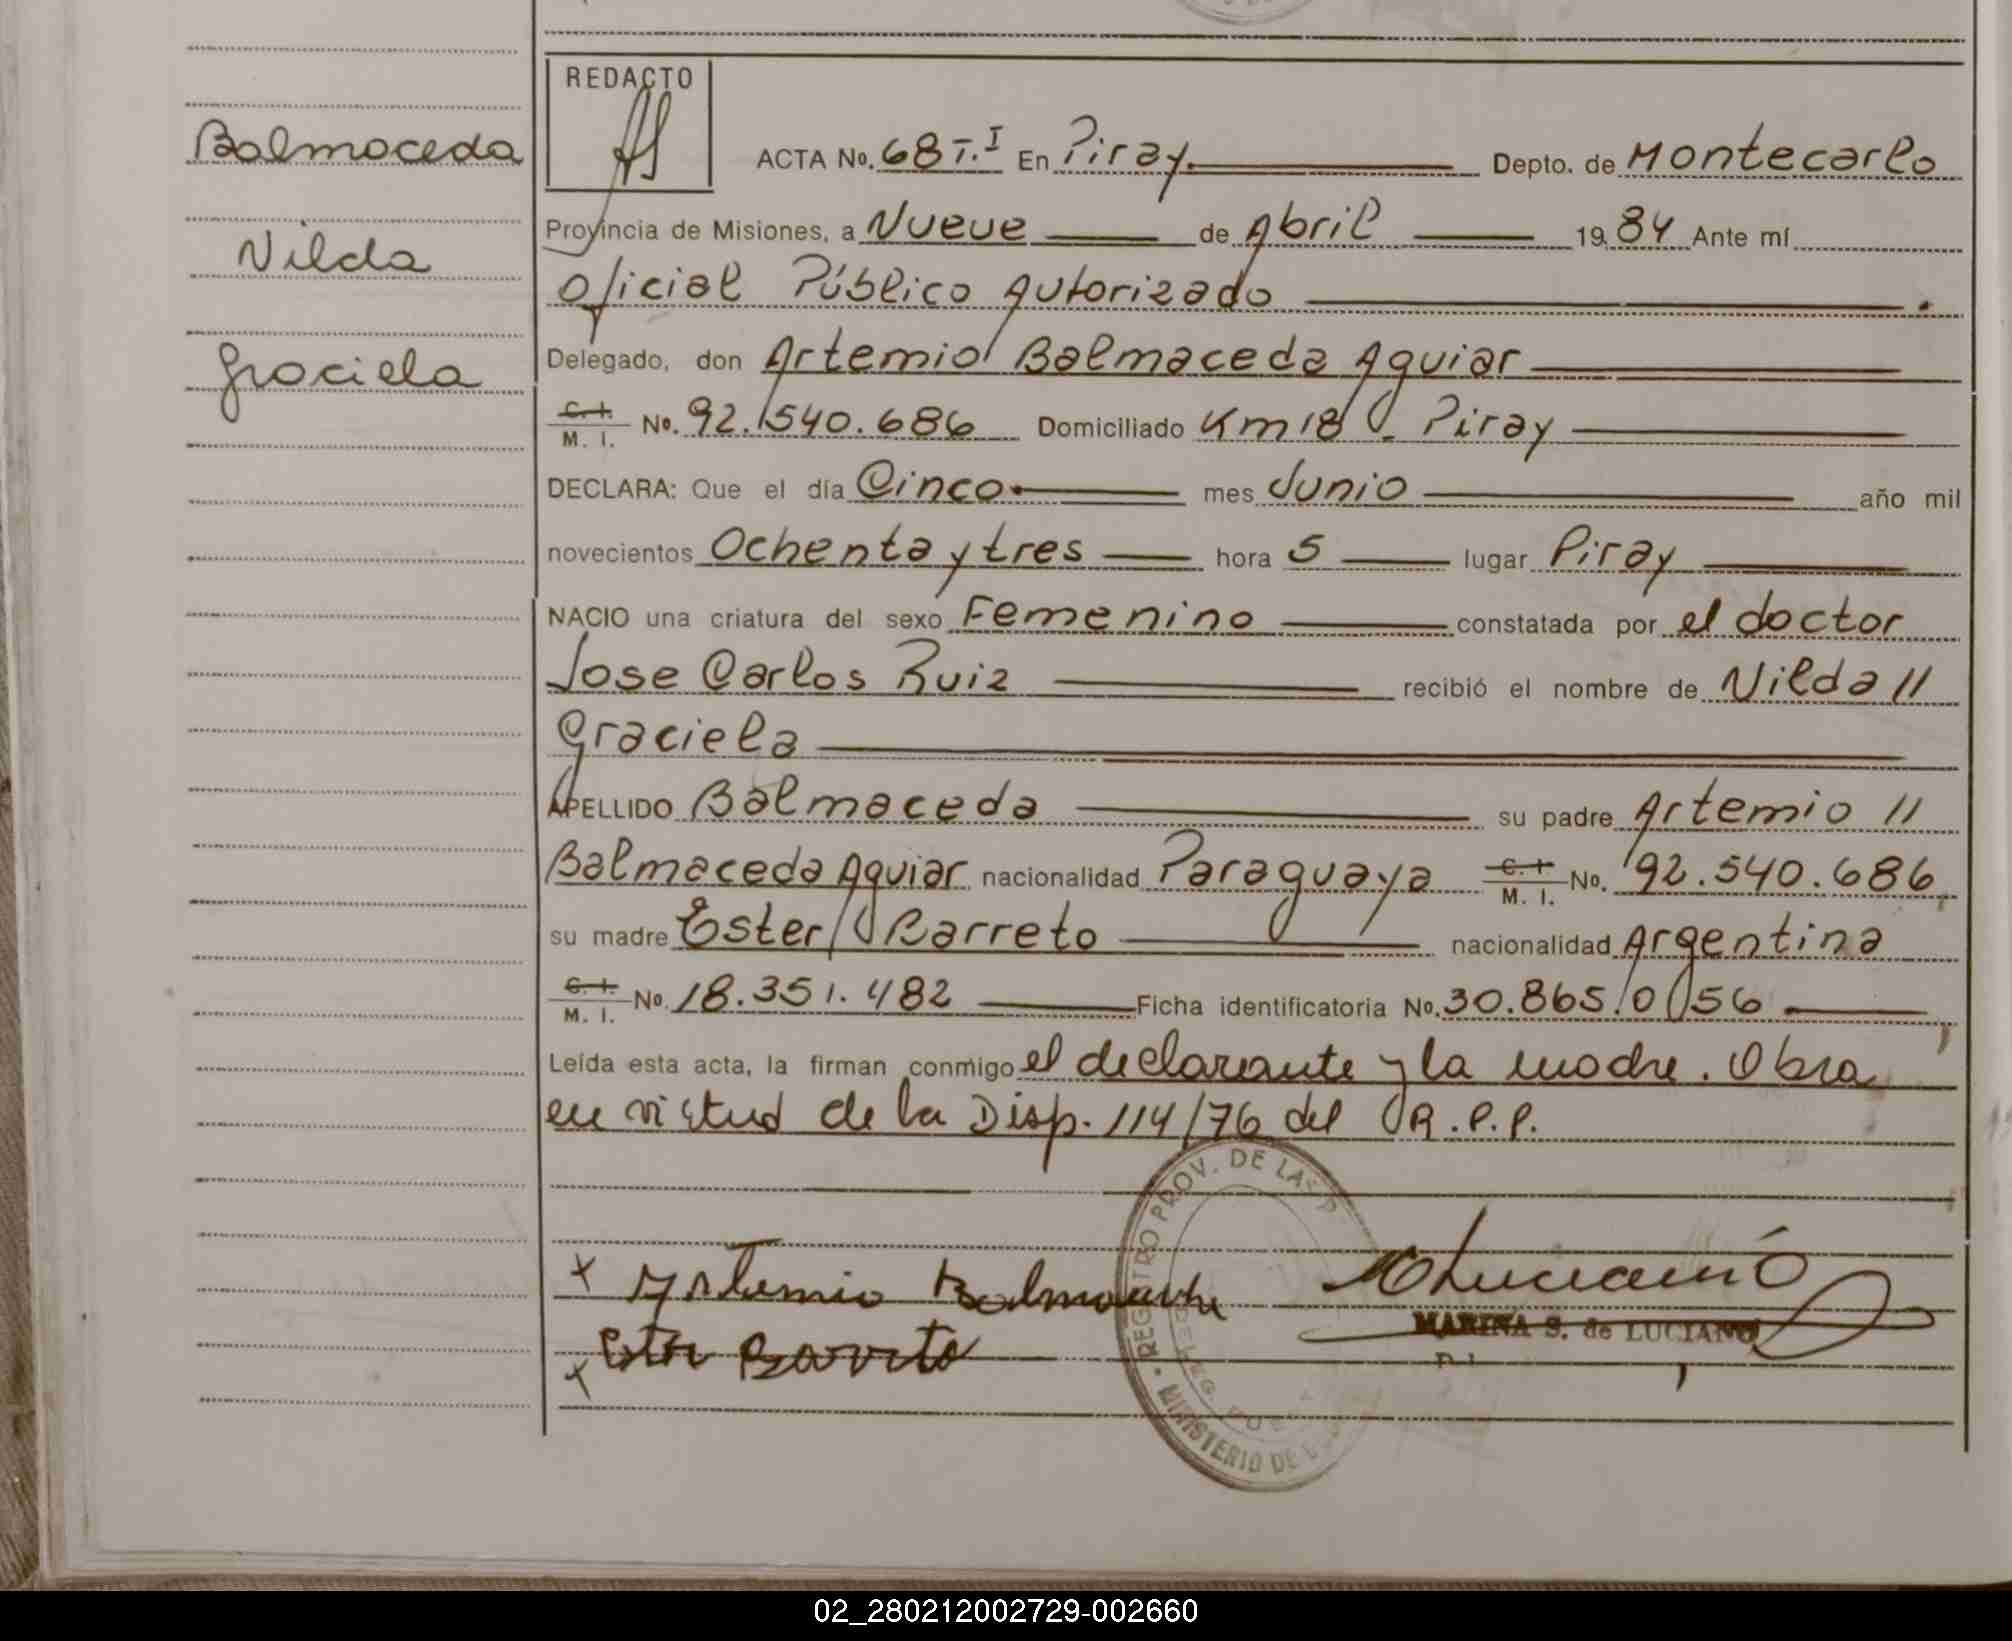 Balmaceda
Nilda
Graciela
REDACTO
ACTA No. 68 T.I En Piray. Depto. de Montecarlo
Provincia de Misiones, a Nueve de Abril 19 84 Ante mí
Oficial Público Autorizado
Delegado, don Artemio Balmaceda Aguiar
C. I. M. I. No. 92.540.686 Domiciliado Km 18 - Piray
DECLARA: Que el día Cinco mes Junio año mil
novecientos Ochenta y tres hora 5 lugar Piray
NACIO una criatura del sexo Femenino constatada por el doctor
Jose Carlos Ruiz recibió el nombre de Nilda //
Graciela
APELLIDO Balmaceda su padre Artemio //
Balmaceda Aguiar nacionalidad Paraguaya C. I. M. I. No. 92.540.686
su madre Ester Barreto nacionalidad Argentina
C. I. M. I. No. 18.351.482 Ficha identificatoria No. 30.865.056
Leída esta acta, la firman conmigo el declarante y la madre. Obra
en virtud de la Disp. 114/76 del R.P.P.
REGISTRO PROV. DE LAS P
MINISTERIO DE
x Artemio Balmaceda
x Ester Barreto
MARINA S. de LUCIANO
02_280212002729-002660